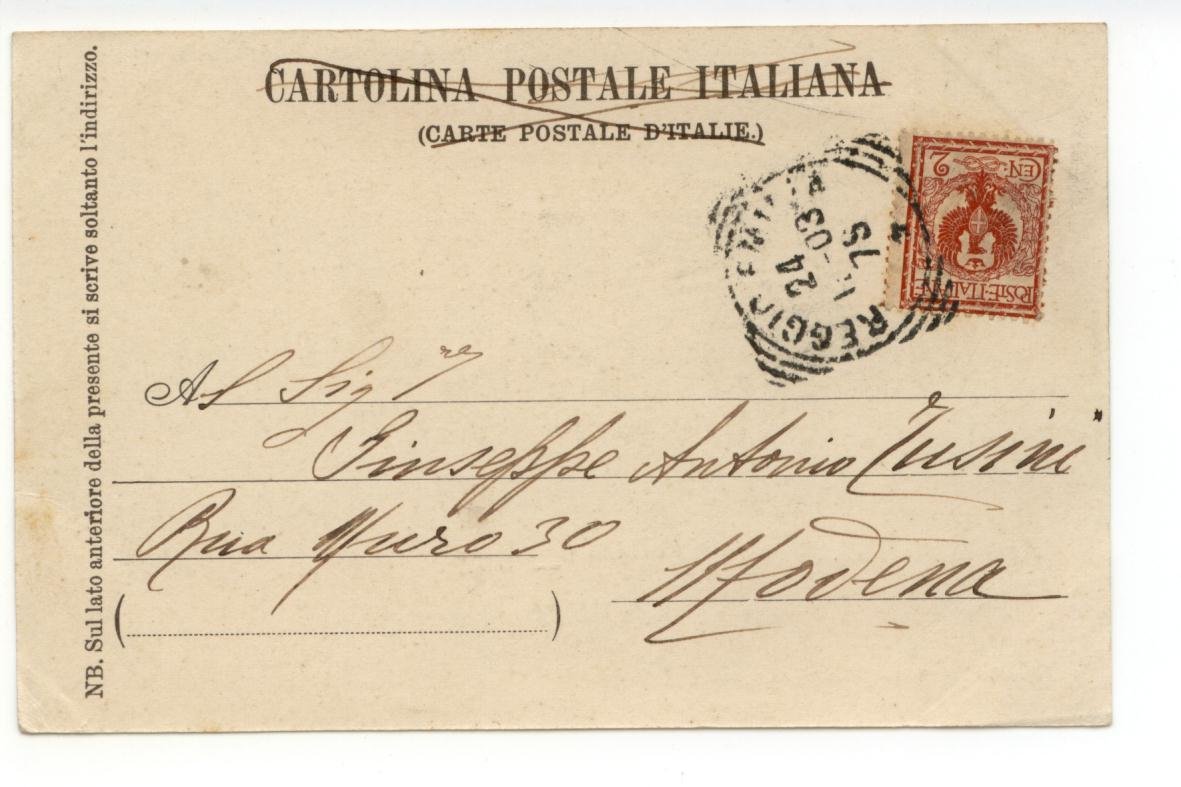 CARTOLINA POSTALE ITALIANA
(CARTE POSTALE D'ITALIE.)
NB. Sul lato anteriore della presente si scrive soltanto l'indirizzo.
CEN. 2
POSTE·ITALIANE
REGGIO EMILIA
24
-03
Al Sigre
Giuseppe Antonio Tusini
Rua Muro 30
Modena